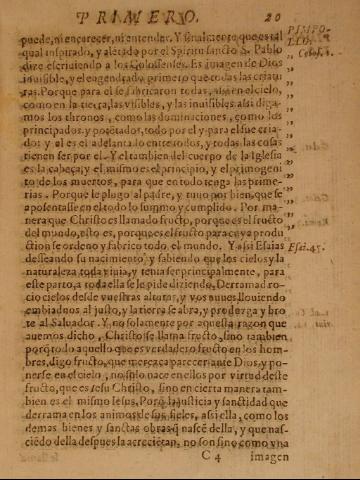 PRIMERO. 20
puede, ni encarecer, ni entender. Y finalmente, que es tal
qual inspirado, y alentado por el Spiritu sancto S. Pablo
dize escriuiendo a los Colossenses. Es imagen de Dios
inuisible, y el engendrado primero que todas las criatu
ras. Porque para el se fabricaron todas, assi en el cielo,
como en la tierra, las visibles, y las inuisibles, assi diga-
mos los thronos, como las dominaciones, como los
principados y potestades, todo por el y para el fue cria-
do: y el es el adelantado entre todos, y todas las cosas
tienen ser por el. Y el tambien del cuerpo de la Iglesia
es la cabeça, y el mismo es el principio, y el primogeni
to de los muertos, para que en todo tenga las prime-
rias. Porque le plugo al padre, y tuuo por bien, que se
aposentasse en el todo lo summo y cumplido. Por ma-
nera que Christo es llamado fructo, porque es el fructo
del mundo, esto es, porque es el fructo para cuya produ
ction se ordeno y fabrico todo el mundo. Y assi Esaias
desseando su nacimiento, y sabiendo que los cielos y la
naturaleza toda viuia, y tenia ser principalmente, para
este parto, a toda ella se le pide diziendo, Derramad ro-
cio cielos desde vuestras alturas, y vos nuues llouiendo
embiadnos al justo, y la tierra se abra, y produzga y bro
te al Saluador. Y no solamente por aquesta razon que
auemos dicho, Christo se llama fructo, sino tambien
porq̃ todo aquello que es verdadero fructo en los hom-
bres, digo fructo, que merezca parecer ante Dios, y po-
nerse en el cielo, no solo nace en ellos por virtud deste
fructo, que es Iesu Christo, sino en cierta manera tam-
bien es el mismo Iesus. Porq̃ la justicia y sanctidad que
derrama en los animos de sus fieles, assi ella, como los
demas bienes y sanctas obras q̃ nascẽ della, y que nas-
ciẽdo della despues la acrecientan, no son sino como vna
C 4 imagen
PIMPO-
LLO.
Colos. 1.
Esai. 45.